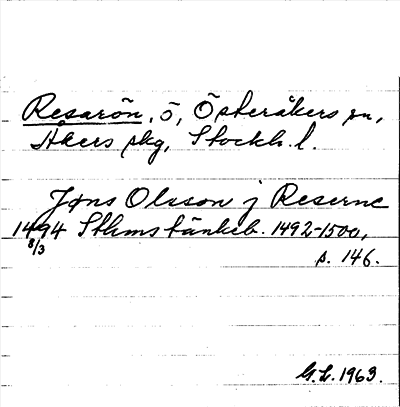 Resarön, ö, Österåkers sn,
Åkers skg, Stockh. l.
Jøns Olsson j Reserne
1494 8/3 Sthms tänkeb. 1492-1500,
s. 146.
G.L. 1963.